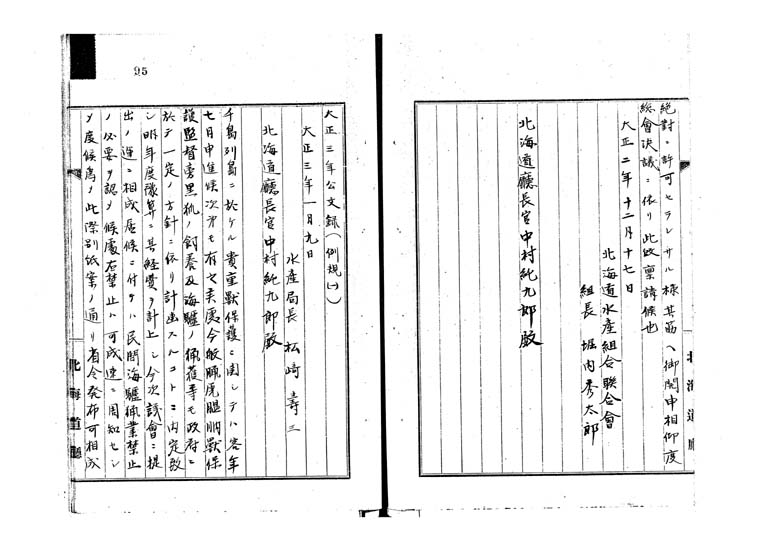 絶對ニ許可セラレサル様其筋ヘ御開申相仰度
総會決議ニ依リ此段稟請候也
大正二年十二月十七日
北海道水産組合聯合會
組長 堀内秀太郎
北海道廳長官中村純九郎殿
北海道廳
95
大正三年公文録(例規一)
大正三年一月九日
水産局長 松崎壽三
北海道廳長官中村純九郎殿
千島列島ニ於ケル貴重獸保護ニ関シテハ客年
七月申進候次第モ有之候處今般臘虎膃肭獸保
護監督旁黒狐ノ飼養及海驢ノ捕獲等モ政府ニ
於テ一定ノ方針ニ依リ計画スルコトニ内定致
シ明年度豫算ニ其経費ヲ計上シ今次議會ニ提
出ノ運ニ相成居候ニ付テハ民間海驢猟業禁止
ノ必要ヲ認メ候處右禁止ハ可成速ニ周知セシ
メ度候為メ此際別紙案ノ通リ省令発布可相成
北海道廳